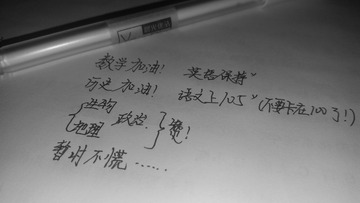 数学加油! 英语保持~
历史加油! 语文上105~(不要卡在100了!)
{生物 政治.
地理 } 稳!
暂时不慌……